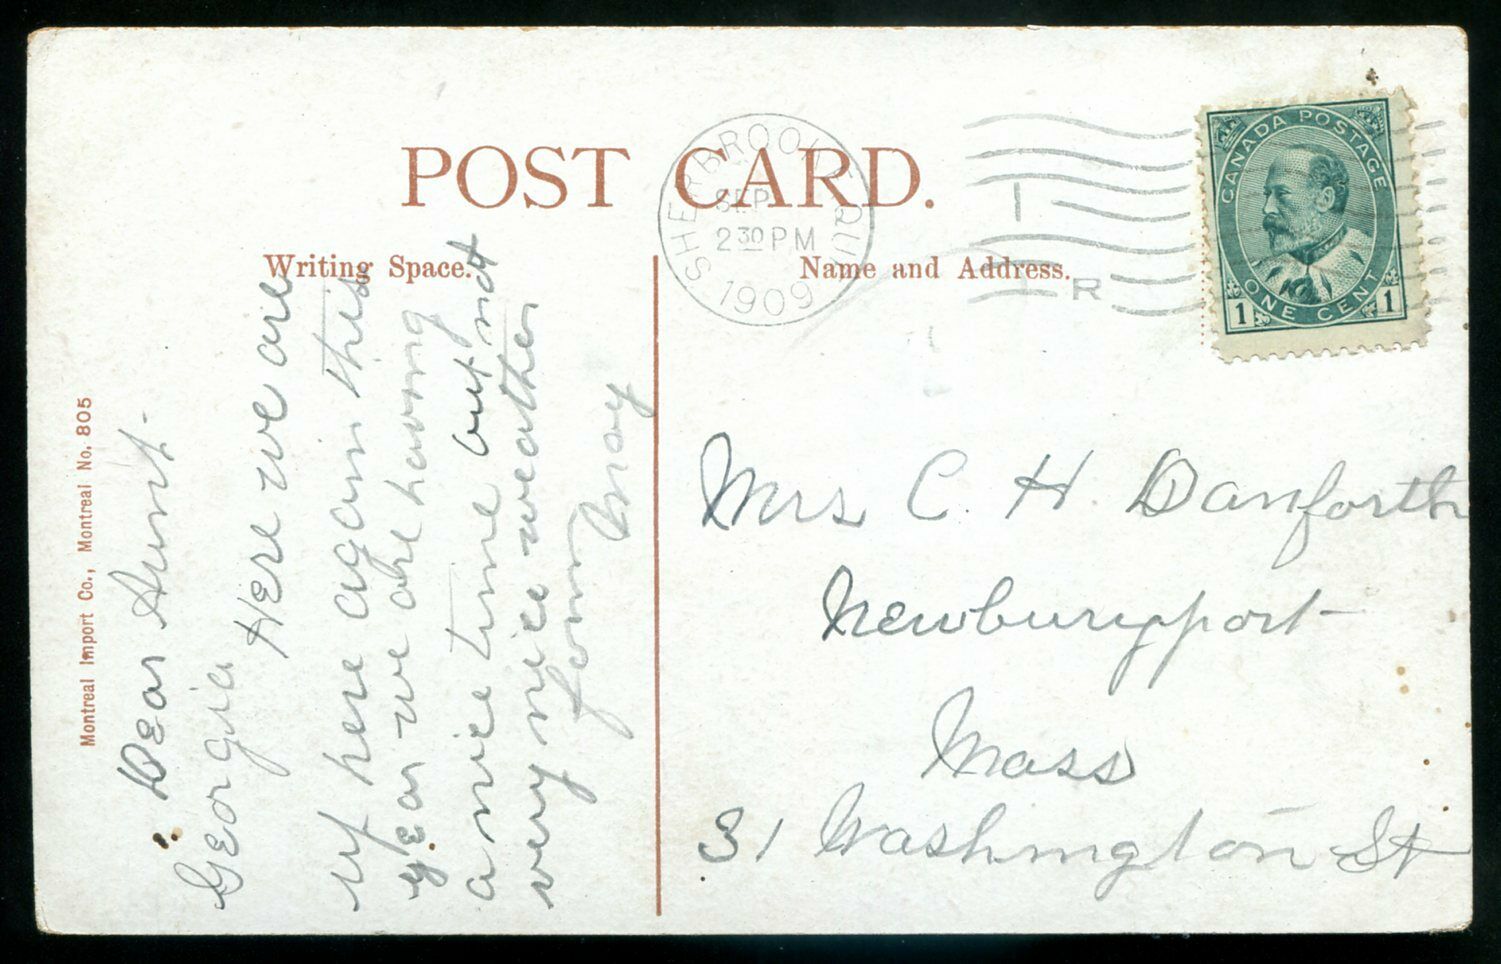 POST CARD.
Writing Space.
Name and Address.
SHERBROOKE QUE.
SEP
2 30 PM
1909
R
CANADA POSTAGE
ONE CENT
1 1
Montreal Import Co., Montreal No. 805
Dear Aunt
Georgia
Here we are
up here again this
year we are having
a nice time but not
very nice weather
from
May
Mrs C. H. Danforth
Newburyport
Mass
31 Washington St